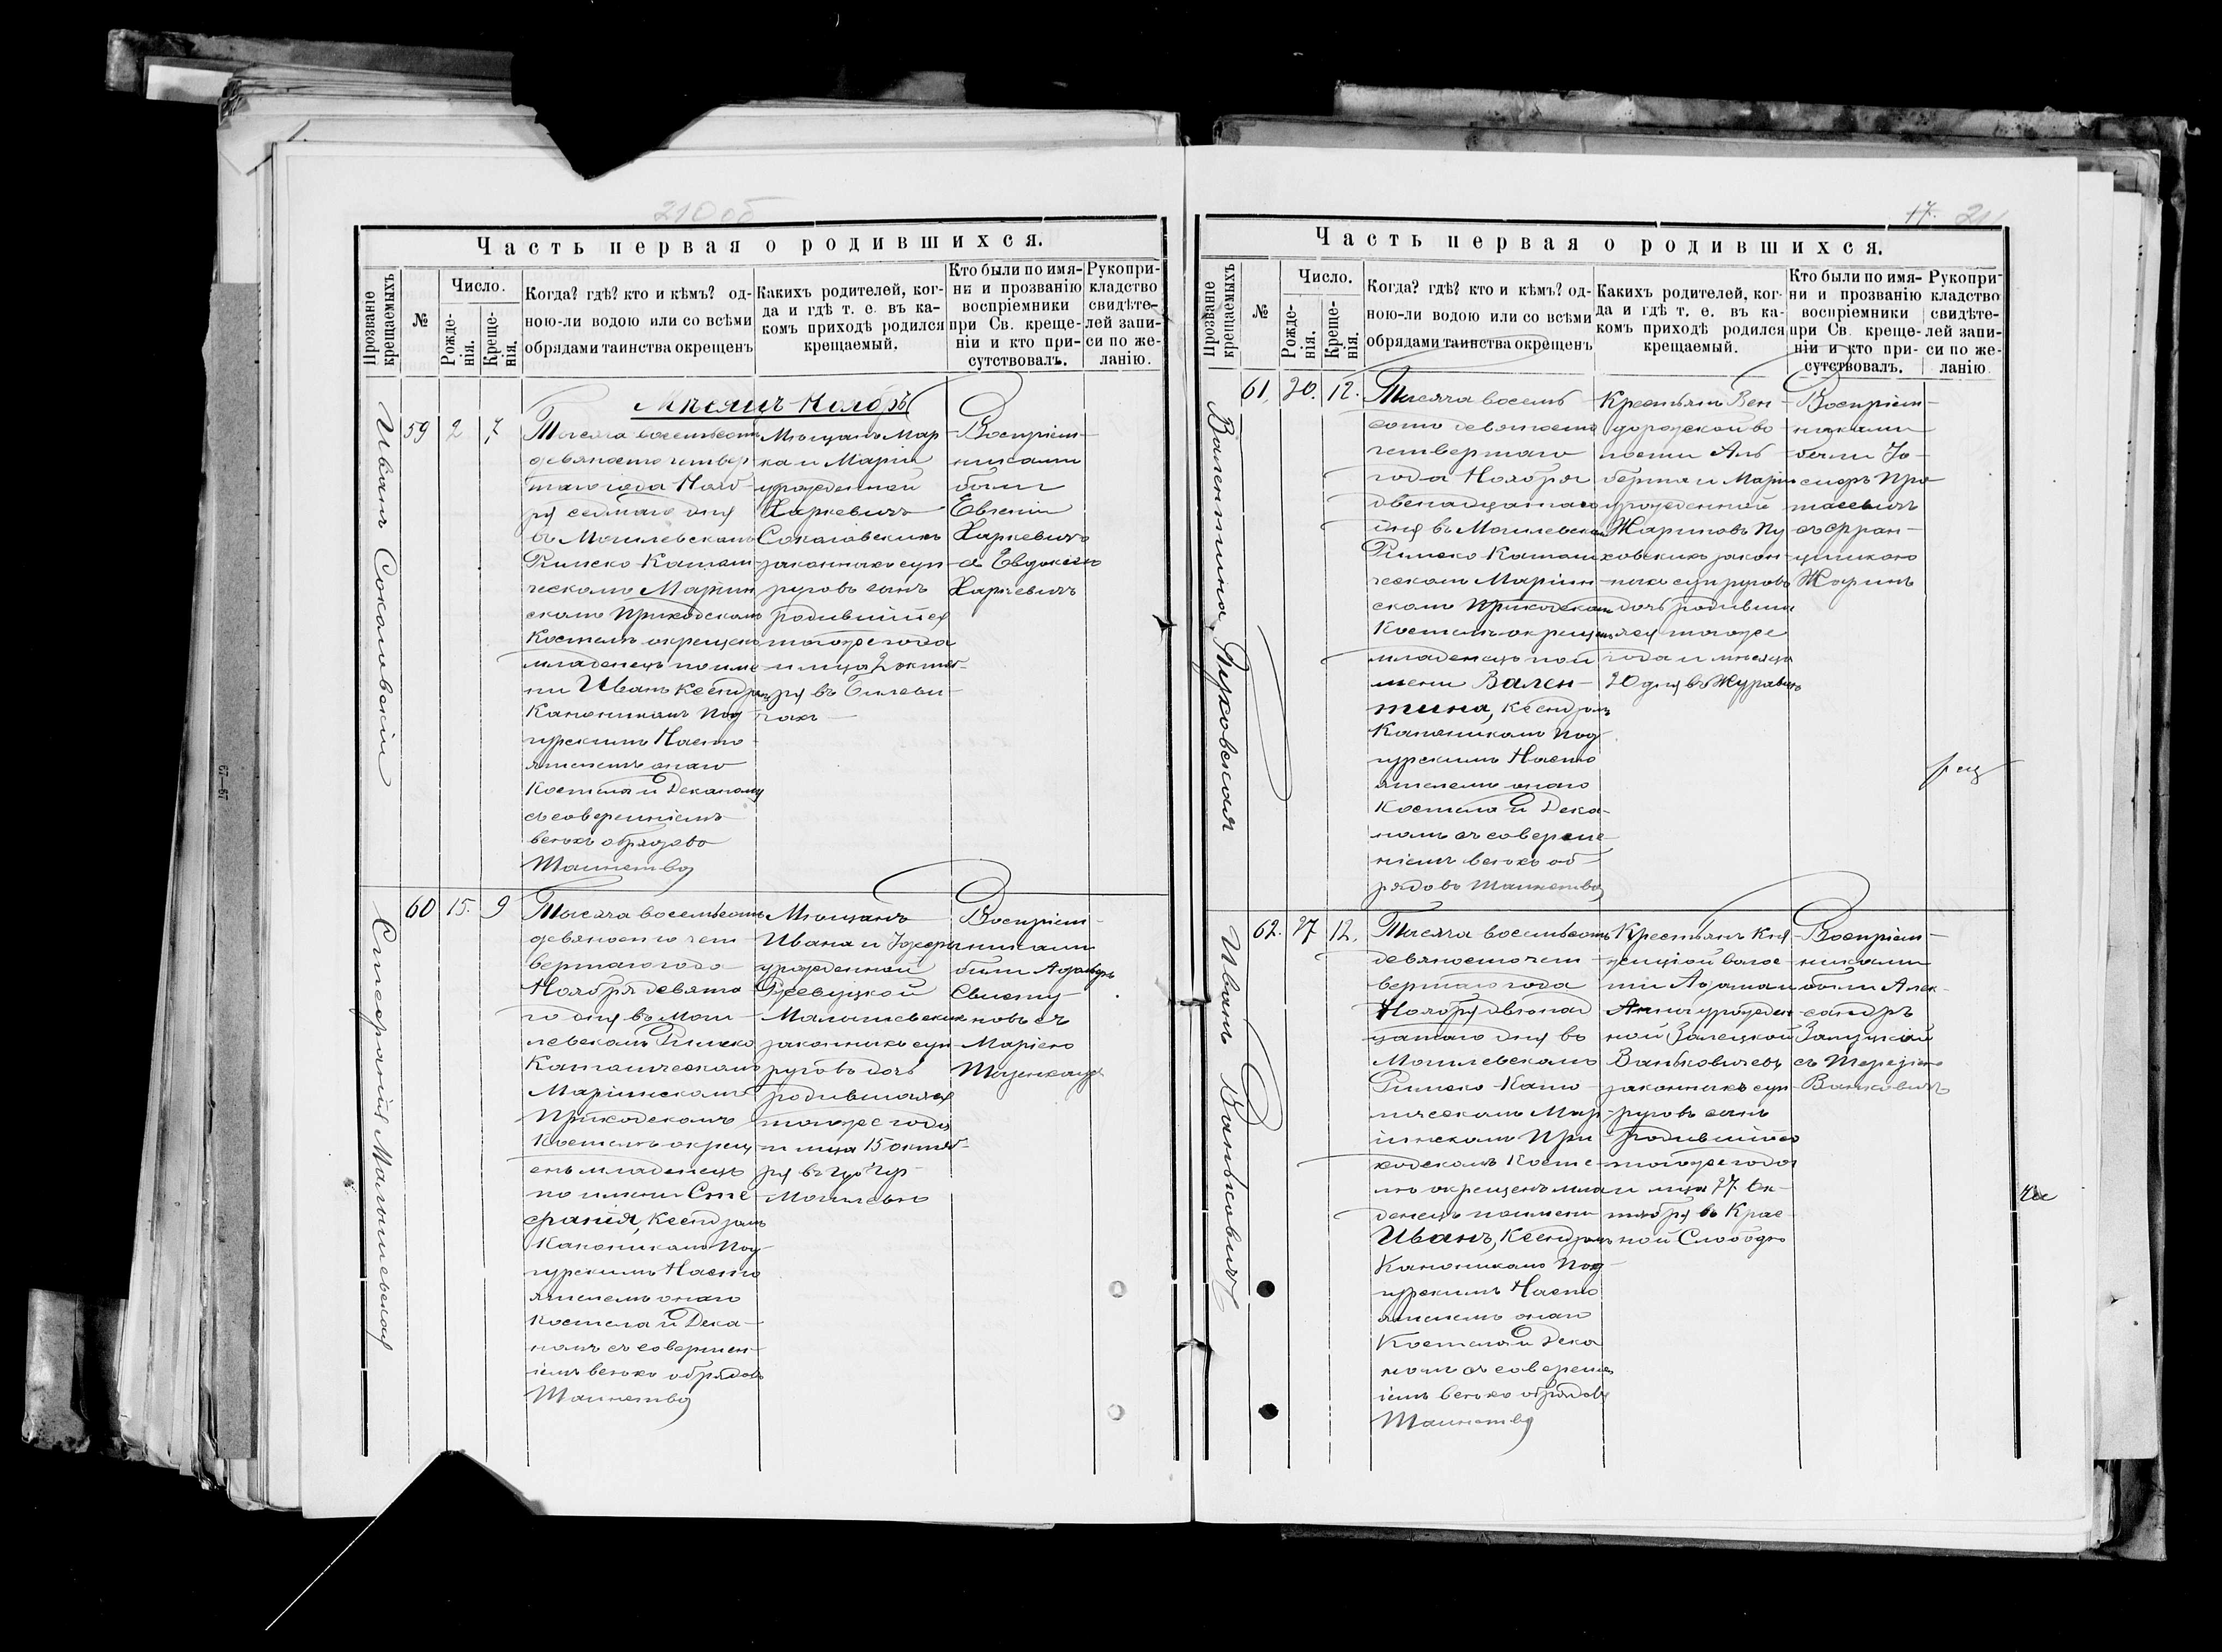 210об
Часть первая о родившихся.
Прозваніе крещаемыхъ
№
Число.
Рожде-
нія.
Креще-
нія.
Когда? гдѣ? кто и кѣмъ? од-
ною-ли водою или со всѣми
обрядами таинства окрещенъ
Какихъ родителей, ког-
да и гдѣ т. е. въ ка-
комъ приходѣ родился
крещаемый.
Кто были по имя-
ни и прозванію
воспріемники
при Св. креще-
ніи и кто при-
сутствовалъ.
Рукопри-
кладство
свидѣте-
лей запи-
си по же-
ланію.
Мѣсяцъ Ноябрь
Иванъ Соколовскій
59
2
7
Тысяча восемьсотъ
девяносто четвер
таго года Нояб-
ря седмаго дня
въ Могилевскомъ
Римско-Катол-
ческомъ Маріин
скомъ Приходскомъ
Костелѣ окрещенъ
младенецъ по име-
ни Иванъ Ксендзомъ
Каноникомъ Под-
гурскимъ Насто
ятелемъ онаго
Костела и Деканомъ
съ совершніемъ
всѣхъ обрядовъ
Таинства
Мѣщанъ Мар
ка и Маріи
урожденной
Харкевичъ
Соколовскихъ
законныхъ суп-
руговъ сынъ
родившийся
тогоже года
и мца 2 октяб-
ря въ
Воспріем-
никами
были
Евгеній
Харкевичъ
съ Евдокіею
Харкевичъ
Стефанія Малышевская
60
15.
9
Тысяча восемьсотъ
девяносто чет-
вертаго года
Ноября девята
го дня въ Моги-
левскомъ Римско
Католическомъ
Маріинскомъ
Приходскомъ
Костелѣ окрещ
енъ младенецъ
по имени Сте-
фанія, Ксендзомъ
Каноникомъ Под-
гурскимъ Насто
ятелемъ онаго
Костела и Дека-
номъ съ совершен-
іемъ всѣхъ обрядовъ
Таинства
Мѣщанъ
Ивана и Юзефы
урожденной
Ржевуцкой
Малышевскихъ
законныхъ суп-
руговъ дочь
родившаяся
тогоже года
и мца 15 октяб-
ря въ
Могилевѣ
Воспріем-
никами
были Адольфъ
съ
Маріею
17. 211
Часть первая о родившихся.
Прозваніе крещаемыхъ
№
Число.
Рожде-
нія.
Креще-
нія.
Когда? гдѣ? кто и кѣмъ? од-
ною-ли водою или со всѣми
обрядами таинства окрещенъ
Какихъ родителей, ког-
да и гдѣ т. е. въ ка-
комъ приходѣ родился
крещаемый.
Кто были по имя-
ни и прозванію
воспріемники
при Св. креще-
ніи и кто при-
сутствовалъ.
Рукопри-
кладство
свидѣте-
лей запи-
си по же-
ланію.
Валентина Пуховская
61.
20.
12.
Тысяча восемь
сотъ девяносто
четвертаго
года Ноября
двенадцатаго
дня въ Могилевском
Римско-Католи
ческомъ Маріин
скомъ Приходскомъ
Костелѣ окрещенъ
младенецъ по и
мени Вален-
тина, Ксендзомъ
Каноникомъ Под-
гурскимъ Насто
ятелемъ онаго
Костела и Дека-
номъ съ соверше
ніемъ всѣхъ об-
рядовъ Таинства
Крестьянъ Вен-
дорожской во
лости Аль
берта и Маріи
урожденной
Жариновъ Пу
ховскихъ закон-
ныхъ супруговъ
дочь родивша
яся тогоже
года и мѣсяца
20 дня въ
Воспріем-
никами
были Іо-
сифъ Про
тасевичъ
съ Фран-
цишкою
Жаринъ
Иванъ Ваньковичъ
62.
27
12.
Тысяча восемьсотъ
девяносто чет-
вертаго года
Ноября двѣнад
цатаго дня въ
Могилевскомъ
Римско-Като-
лическомъ Мар-
іинскомъ При
ходскомъ Косте-
лѣ окрещенъ мла
денецъ по имени
Иванъ, Ксендзомъ
Каноникомъ Под-
гурскимъ Насто
ятелемъ онаго
Костела и Дека
номъ съ совершен
іемъ всѣхъ обрядовъ
Таинства
Крестьянъ Кня-
жицкой волос-
ти Адама и
Анны урожден-
ной Залецкой
Ваньковичевъ
законныхъ суп-
руговъ сынъ
родившійся
тогоже года
и мца 27 Ок-
тября въ Крас-
ной Слободѣ
Воспріем-
никами
были Алек-
сандръ
съ Терезіею
Ваньковичъ